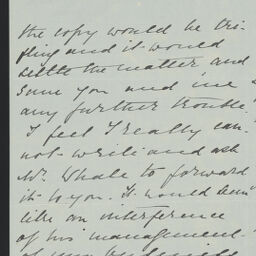 the copy would be tri-
fling and it would
settle the matter, and
save you and me
any further trouble.
I feel I really can-
not write and ask
Mr. Whale to forward
it to you. It would seem
like an interference
of his management
of my